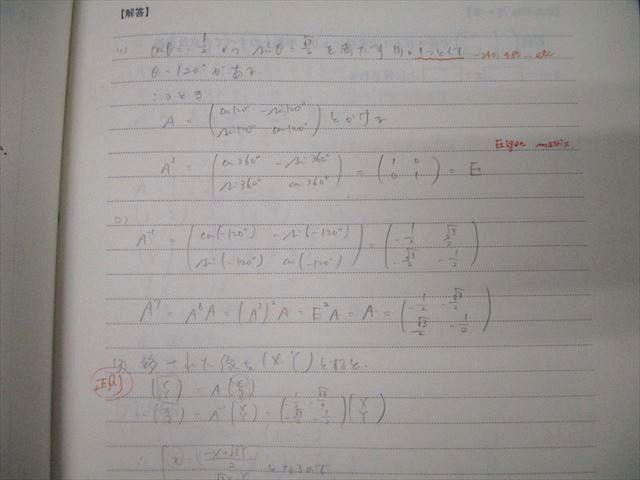 【解答】
(1) cosθ = -1/2 かつ sinθ = √3/2 を満たすθの1つとして -240, 480, … etc
θ = 120° がある。
このとき
A = (cos120° -sin120° sin120° cos120°) とかける
Eigen matrix
A³ = (cos360° -sin360° sin360° cos360°) = (1 0 0 1) = E
(2)
A⁻¹ = (cos(-120°) -sin(-120°) sin(-120°) cos(-120°)) = (-1/2 √3/2 -√3/2 -1/2)
A⁷ = A⁶A = (A³)²A = E²A = A = (-1/2 -√3/2 √3/2 -1/2)
移された像を(X, Y)とすると、
(X Y) = A(x y)
∴ (x y) = A⁻¹(X Y) = (X Y)